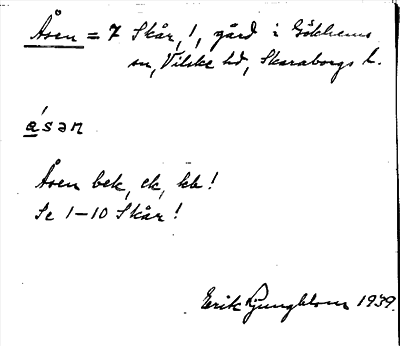 Åsen = 7 Skår, 1, gård i Gökhems
sn, Vilske hd, Skaraborgs l.
ásən
Åsen bek, ck, kb!
Se 1–10 Skår!
Erik Ljungblom 1939.